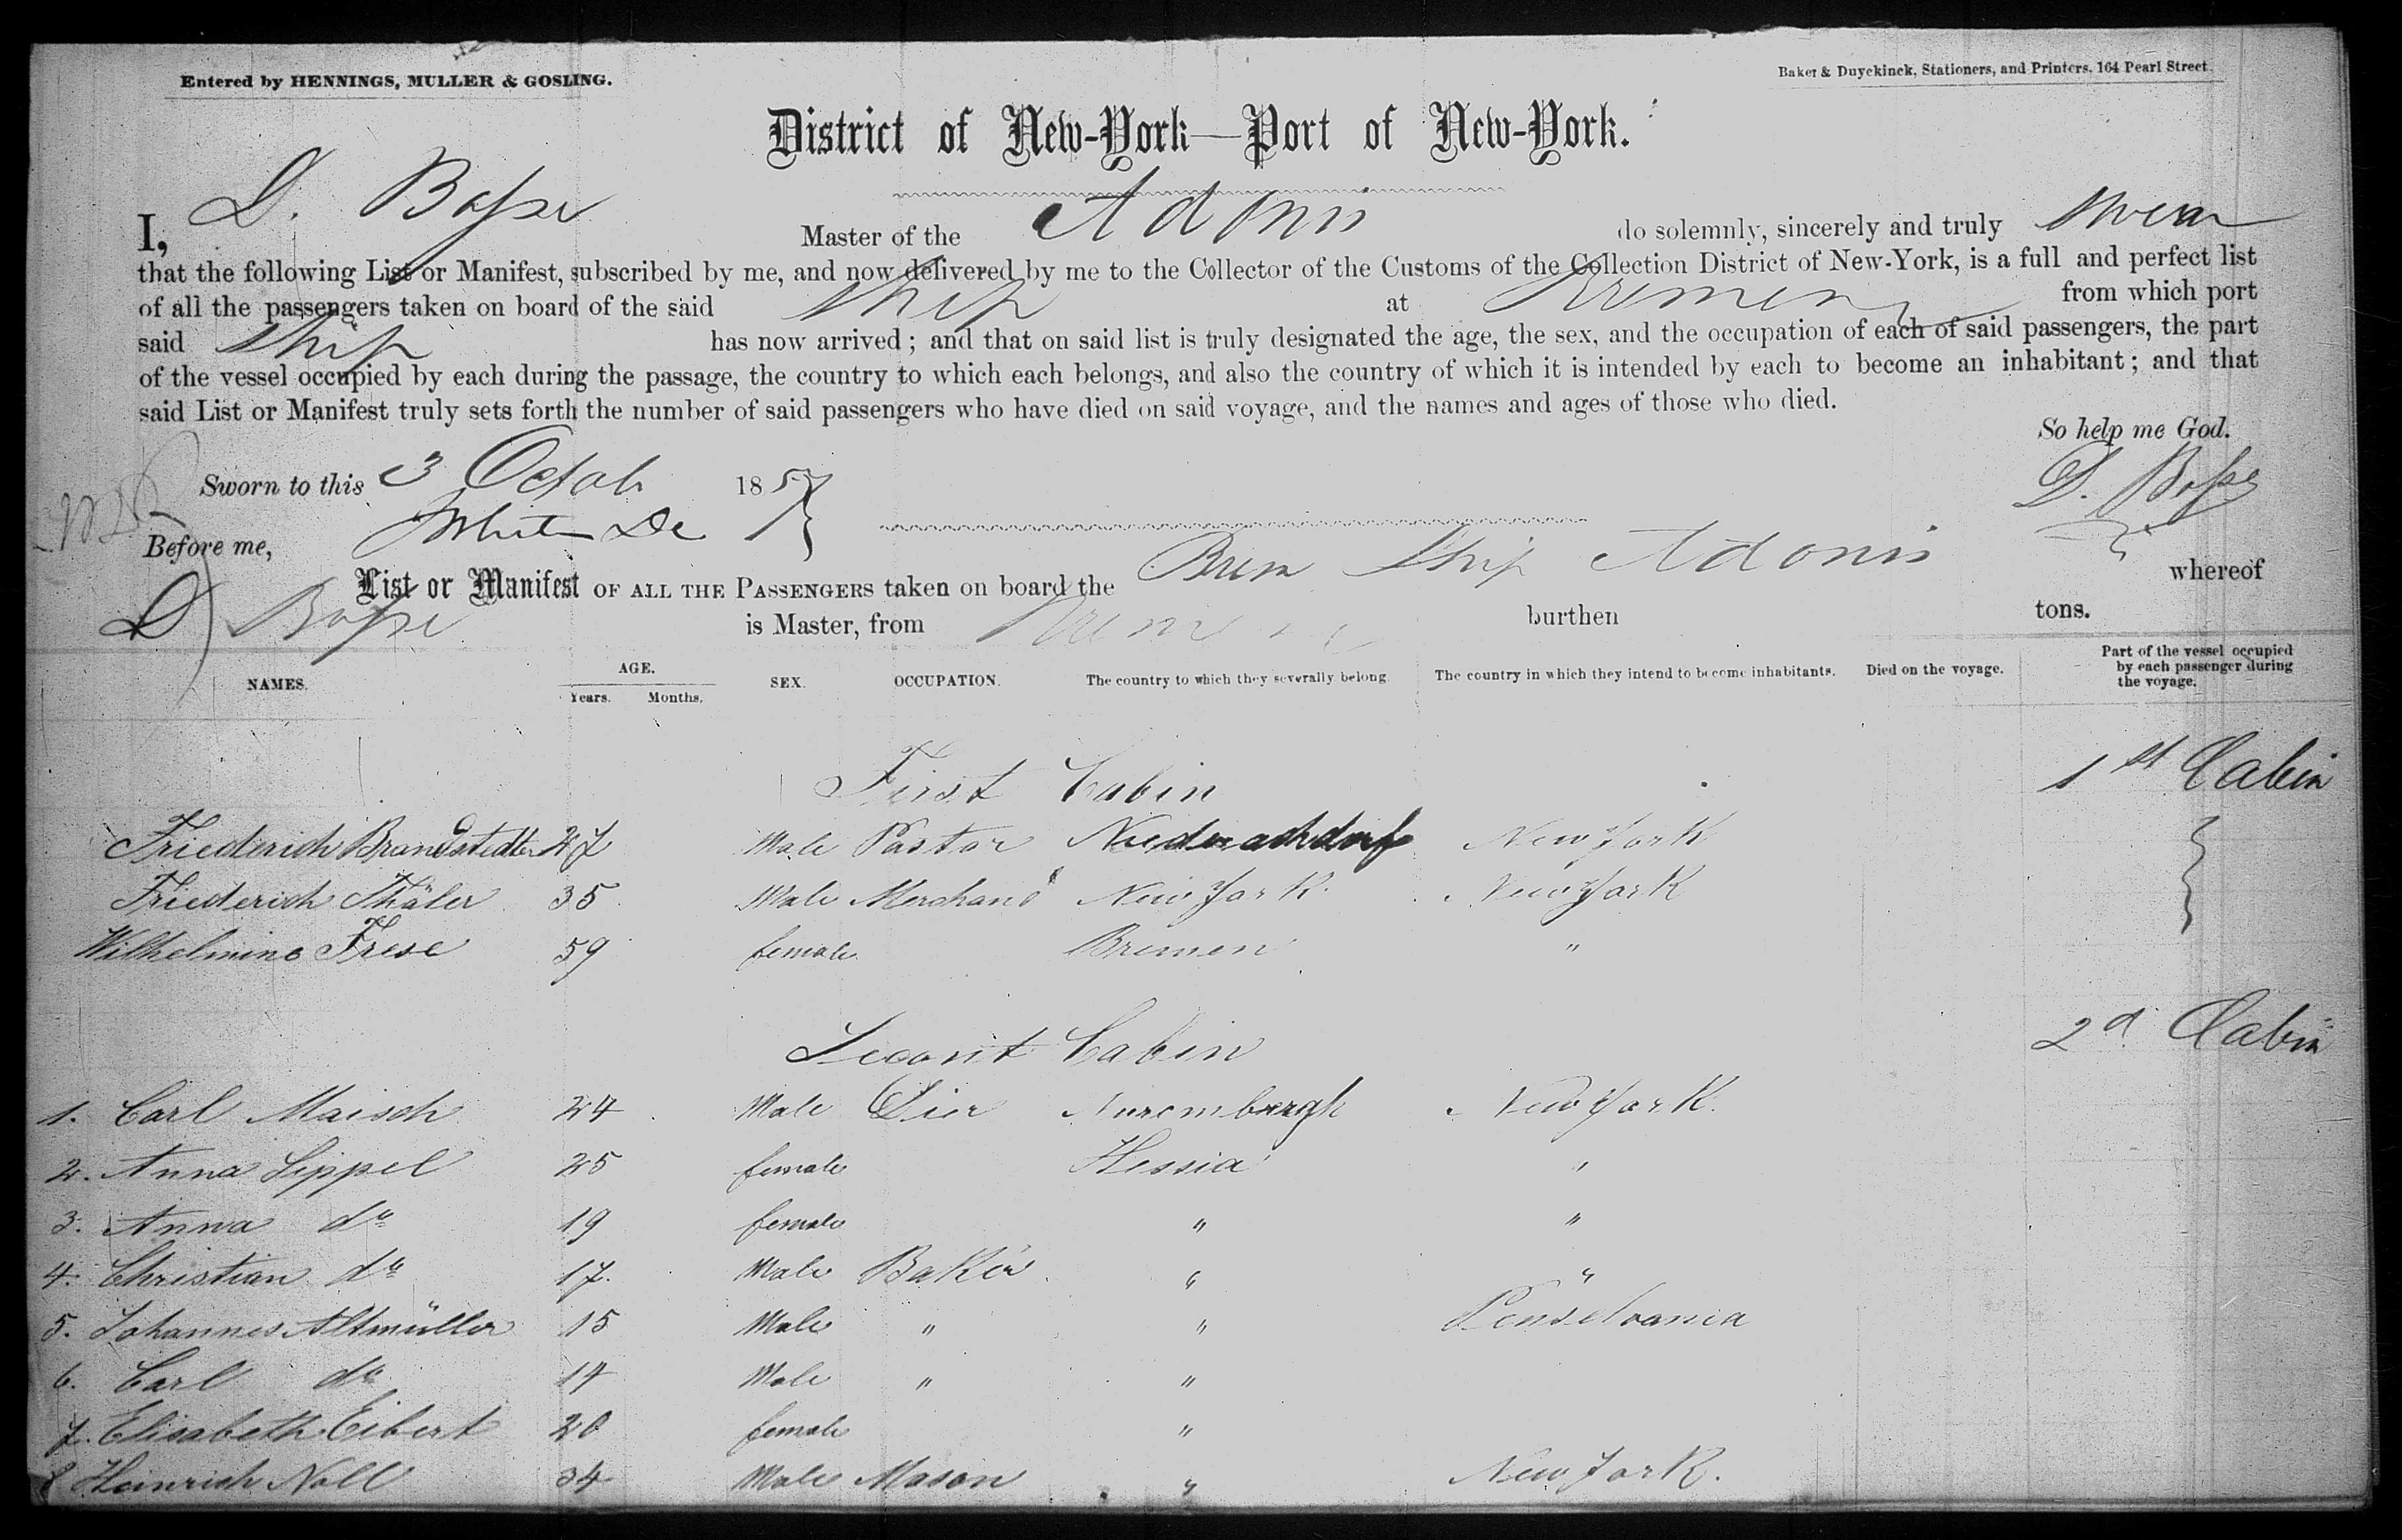 Entered by HENNINGS, MULLER & GOSLING.
Baker & Duyckinck, Stationers, and Printers, 164 Pearl Street.
District of New-York—Port of New-York.
I, D. Bosse Master of the Adonis do solemnly, sincerely and truly swear
that the following List or Manifest, subscribed by me, and now delivered by me to the Collector of the Customs of the Collection District of New-York, is a full and perfect list
of all the passengers taken on board of the said ship at Bremen from which port
said ship has now arrived; and that on said list is truly designated the age, the sex, and the occupation of each of said passengers, the part
of the vessel occupied by each during the passage, the country to which each belongs, and also the country of which it is intended by each to become an inhabitant; and that
said List or Manifest truly sets forth the number of said passengers who have died on said voyage, and the names and ages of those who died.
So help me God.
Sworn to this 3 Octob 1857
D. Bosse
Before me,
List or Manifest OF ALL THE PASSENGERS taken on board the Brem Ship Adonis whereof
D Bosse is Master, from Bremen burthen tons.
NAMES. AGE. Years. Months. SEX. OCCUPATION. The country to which they severally belong. The country in which they intend to become inhabitants. Died on the voyage. Part of the vessel occupied by each passenger during the voyage.
First Cabin 1st Cabin
Friederich Brandstedter 27 Male Pastor New York
Friederich Thäler 35 Male Merchand New York New York
Wilhelmine Frese 59 female Bremen "
Secont Cabin 2d Cabin
1. Carl Maisch 24 Male Dier Nurembergh New York.
2. Anna Lippel 25 female Hessia "
3. Anna do 19 female " "
4. Christian do 17. Male Baker " "
5. Johannes Altmüller 15 Male " " Penselvania
6. Carl do 14 Male " "
7. Elisabeth Eibert 20 female "
8 Heinrich Noll 34 Male Mason " New York.